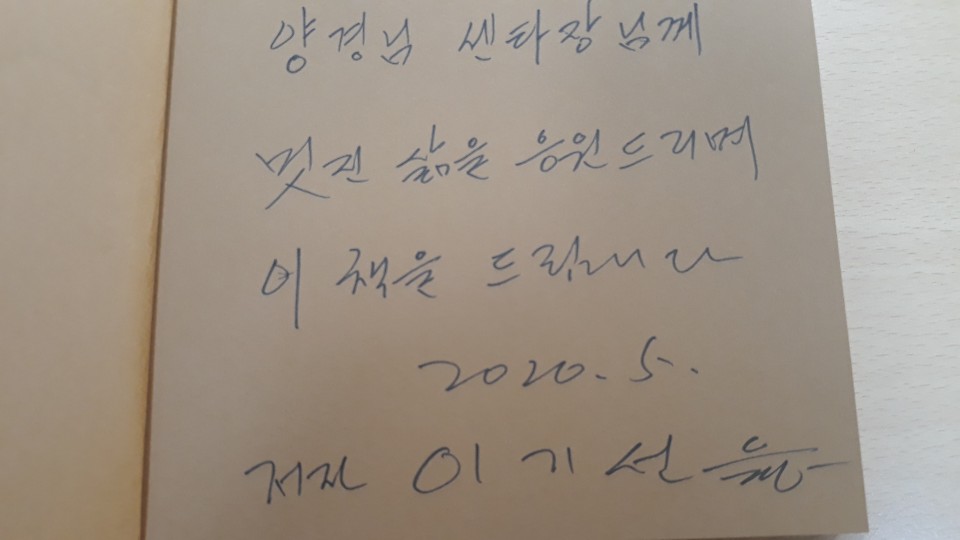 양경님 센타장님께
멋진 삶을 응원드리며
이 책을 드립니다
2020. 5.
저자 이기선 드림